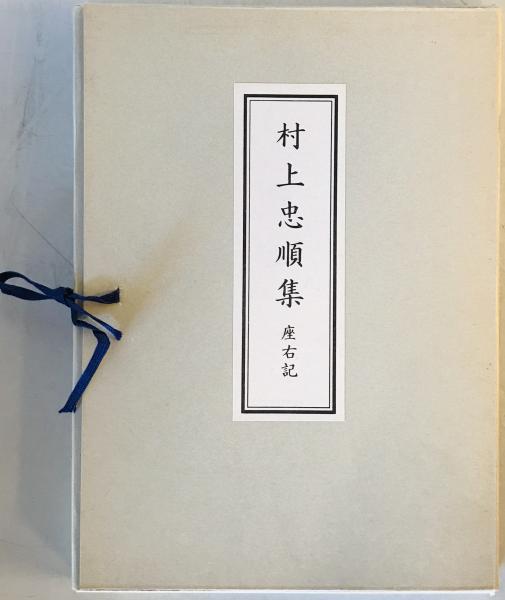 村上忠順集 座右記